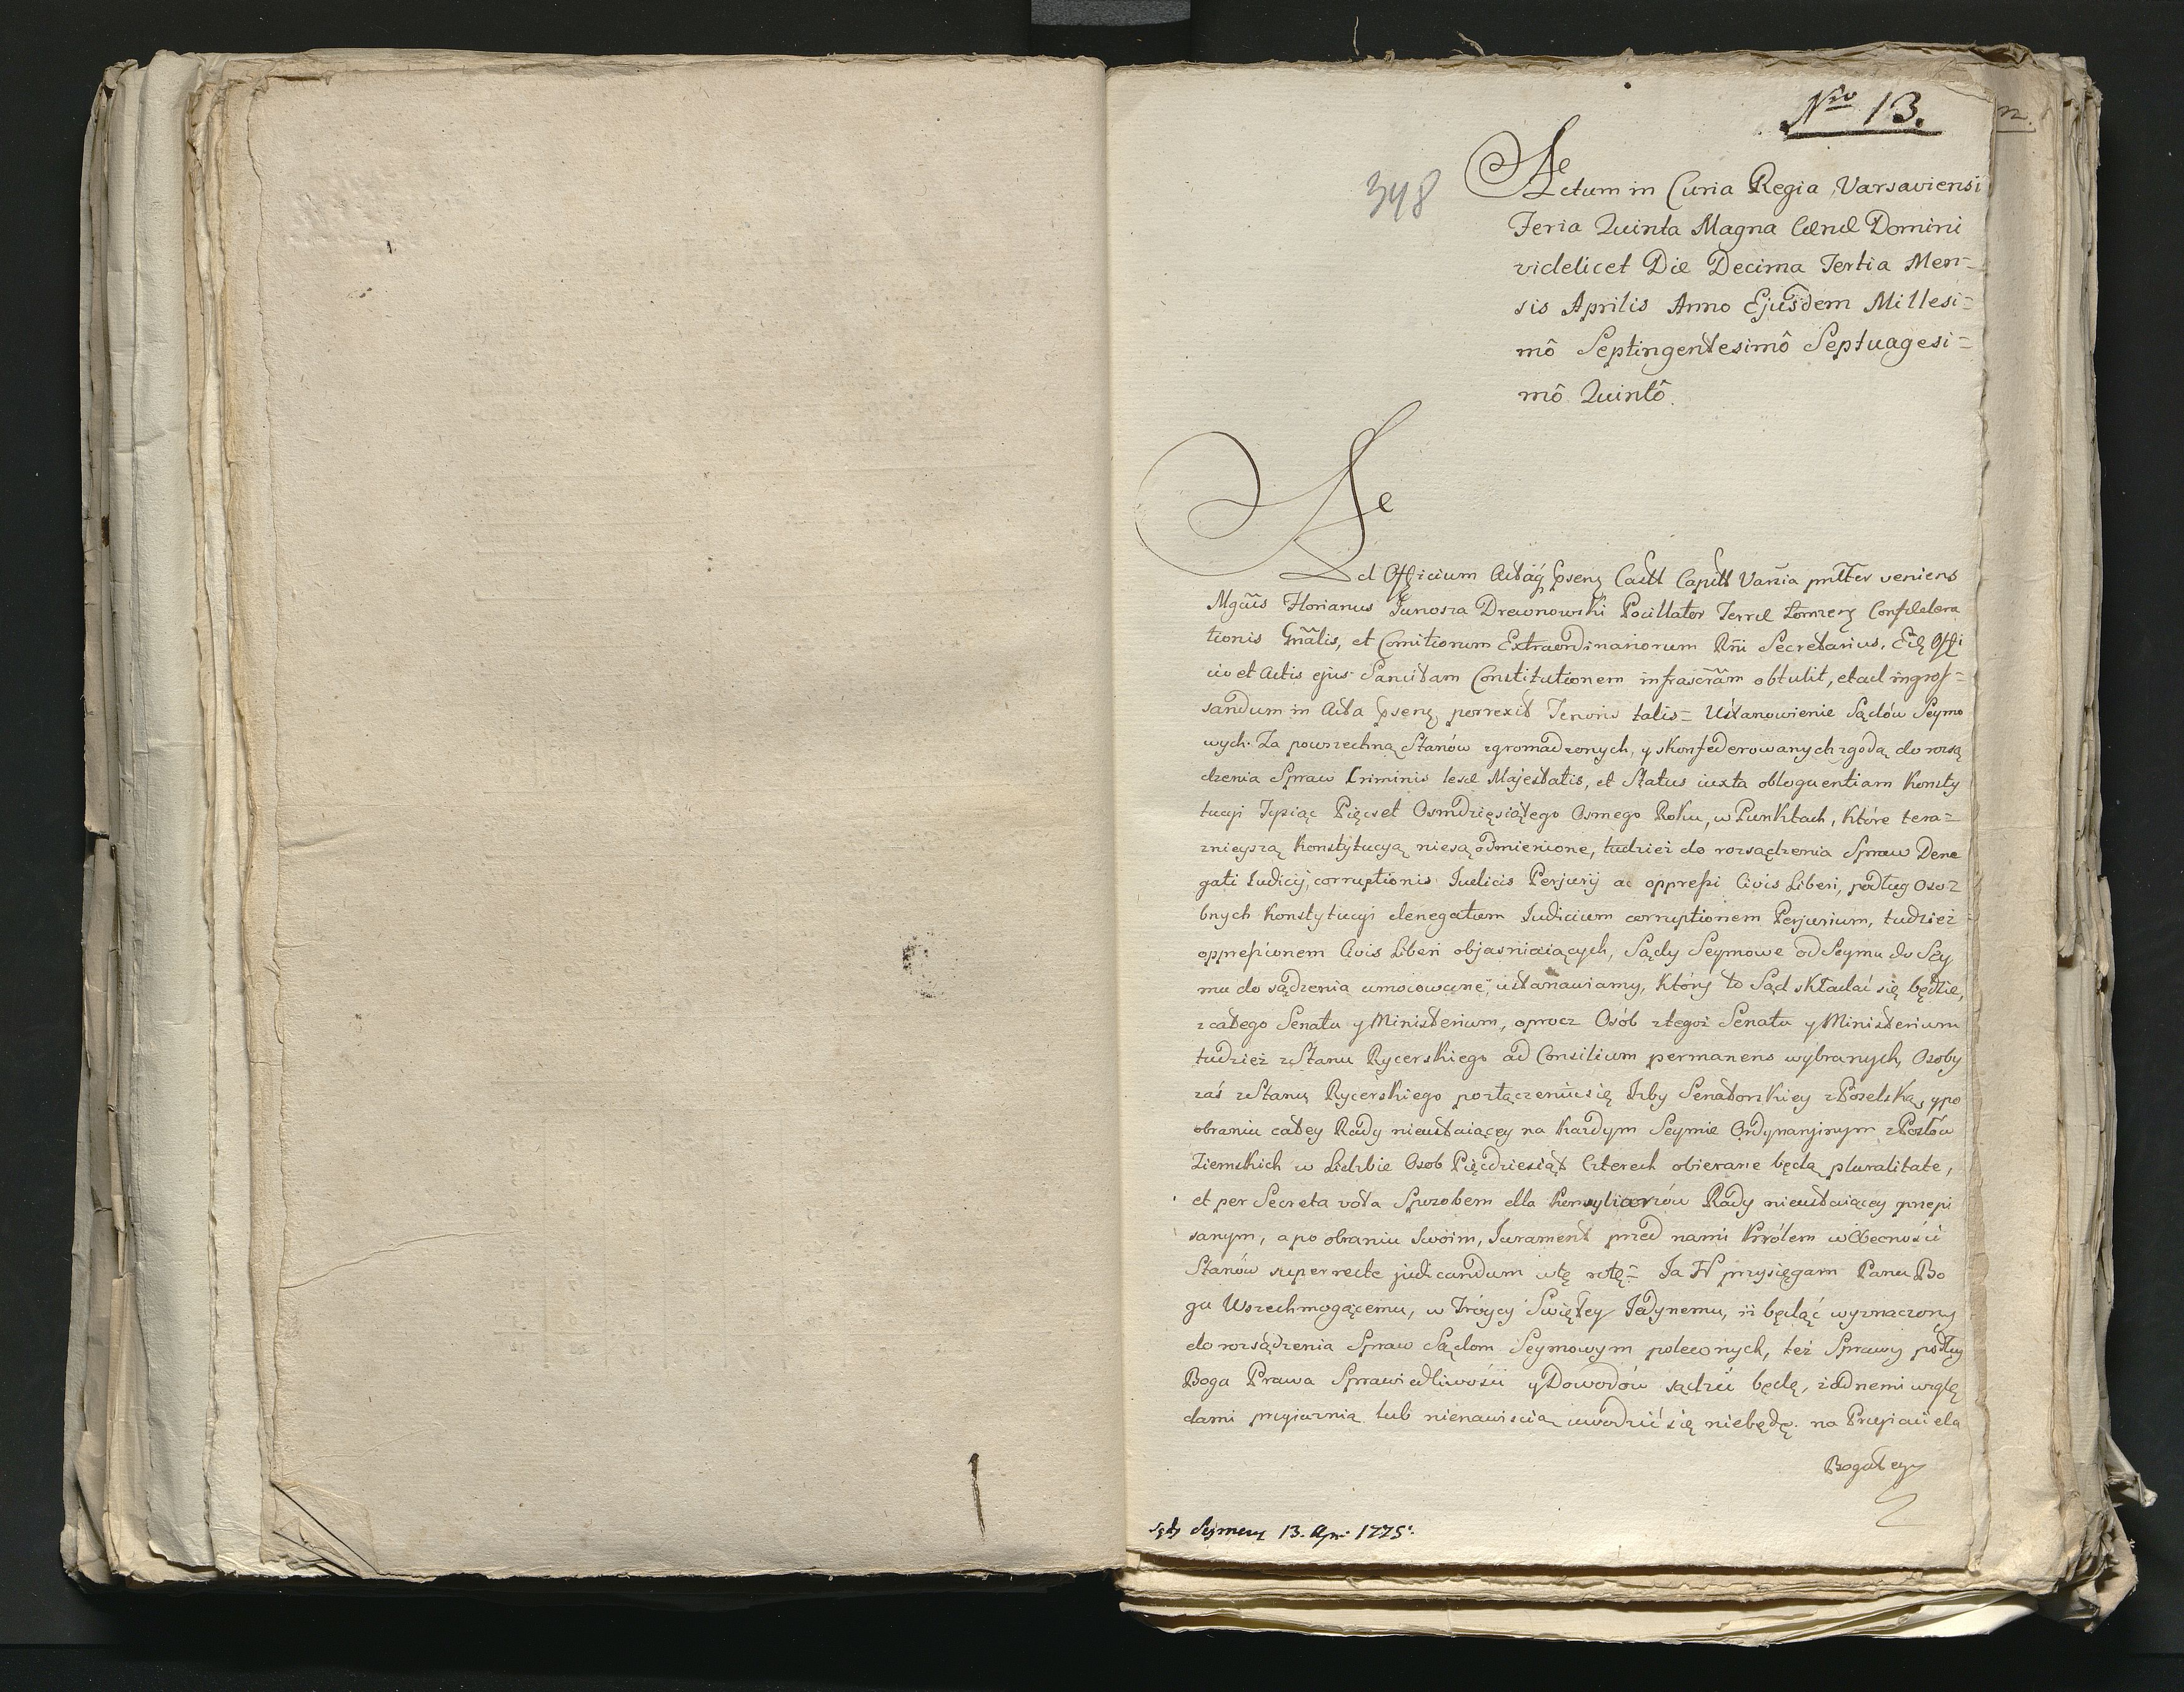 Nro 13.
348
Actum in Curia Regia Varsaviensi
Feria Quinta Magna Cænæ Domini
videlicet Die Decima Tertia Men=
sis Aprilis Anno Ejusdem Millesi=
mô Septingentesimô Septuagesi=
mô Quintô.
Ad Officium Castr Capitl veniens
Florianus Junosza Drewnowski Pocillator Terræ Łomzen Confædera
tionis Gnãlis, et Comitiorum Extraordinariorum Rñi Secretarius, Offi
cio et Actis ejus Sancitam Constitutionem infrascrãm obtulit, et ad ingros=
sandum in Acta porrexit Tenoris talis= Ustanowienie Sądów Seymo
wych. Za powszechną Stanów zgromadzonych, y skonfederowanych zgodą do rozsą
dzenia Spraw Criminis lesæ Majestatis, et Status iuxta obloquentiam Konsty
tucyi Tysiąc Pięcset Osmdziesiątego Osmego Roku, w Punktach, które tera=
znieyszą Konstytucyą niesą odmienione, tudzież do rozsądzenia Spraw Dene
gati Iudicij, corruptionis Iudicis Perjurij ac oppressi Civis Liberi, podług Oso=
bnych Konstytucyi denegatum Iudicium corruptionem Perjurium, tudzież
oppressionem Civis Liberi objasniaiących, Sądy Seymowe od Seymu do Sey
mu do sądzenia umocowane, ustanawiamy, który to Sąd składać się będzie,
z całego Senatu y Ministerium, oprocz Osób z tegoż Senatu y Ministerium
tudzież z Stanu Rycerskiego ad Consilium permanens wybranych, Osoby
zaś z Stanu Rycerskiego po złączeniu się Izby Senatorskiey z Poselską, y po
obraniu całey Rady nieustaiącey na każdym Seymie Ordynaryinym z Posłów
Ziemskich w Liczbie Osob Pięcdziesiąt Czterech obierane będą pluralitate,
et per Secreta vota Sposobem dla Konsyliarzów Rady nieustaiącey przepi
sanym, a po obraniu Swoim, Iurament przed nami Królem w Obecności
Stanów super recte judicandum w tę rotę= Ja N przysięgam Panu Bo
gu Wszechmogącemu, w Tróycy Swiętey Jedynemu, iż będąc wyznaczony
do rozsądzenia Spraw Sądom Seymowym poleconych, też Sprawy podług
Boga Prawa Sprawiedliwości y Dowodów sądzić będę, żadnemi wzglę
dami przyiaznią lub nienawiscią uwodzić się niebędę. na Przyiaciela
Bogatey
Sądy Seymowe 13. Apr. 1775.